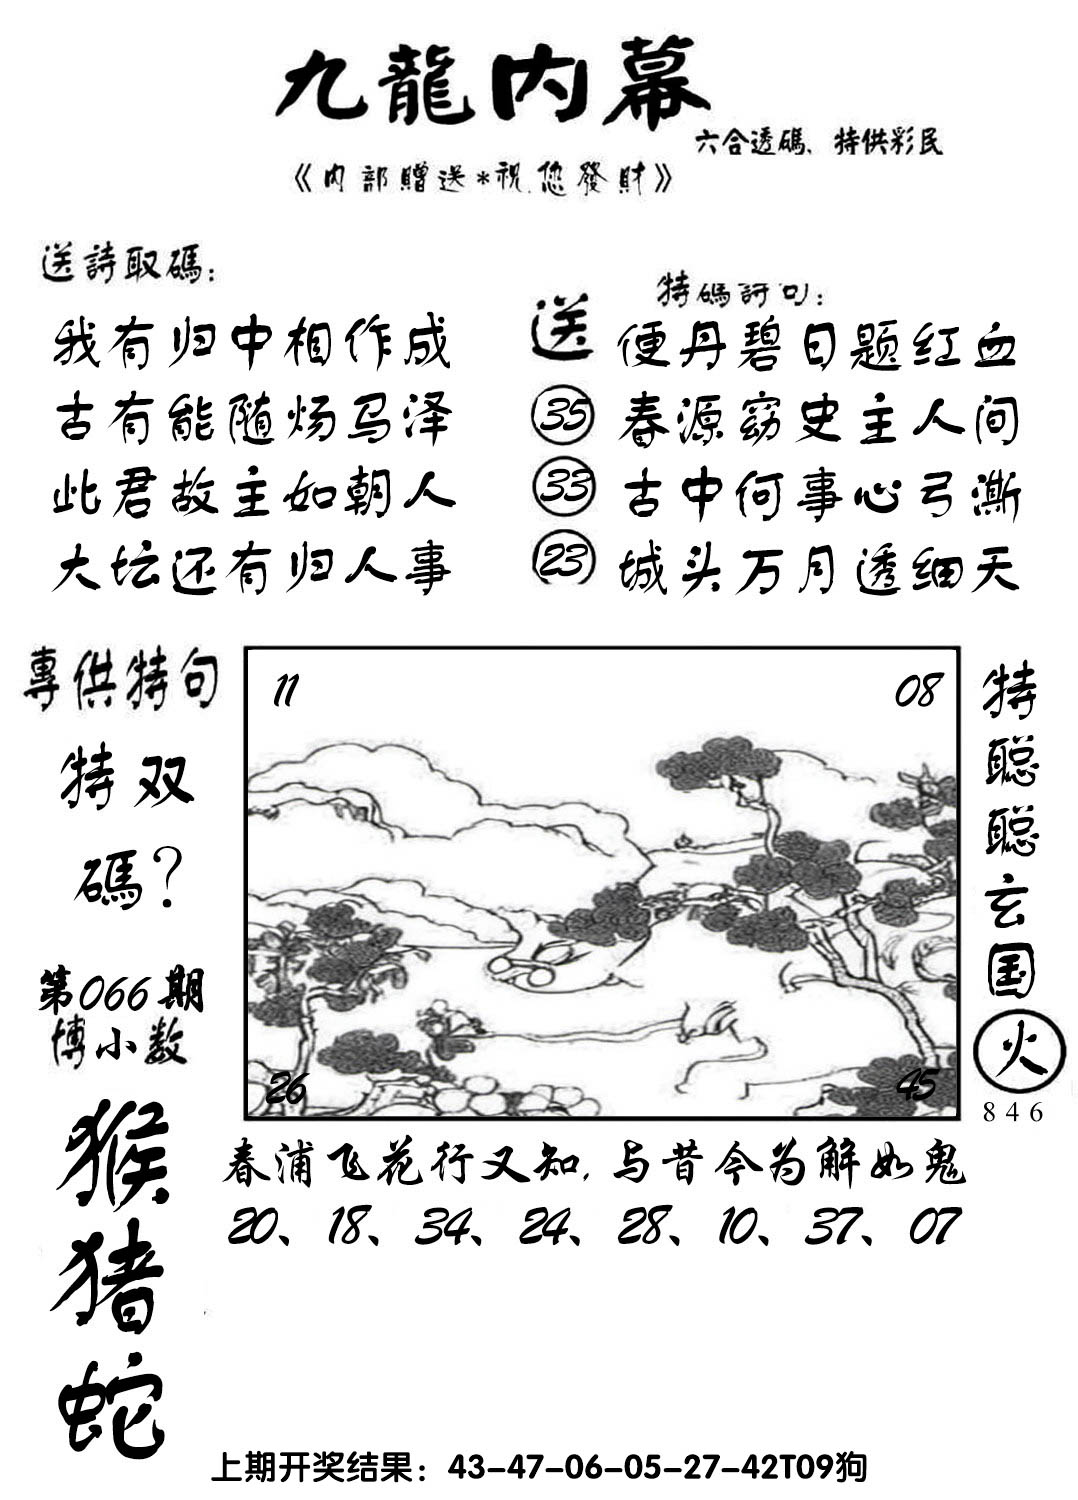 九龍内幕
六合透碼、特供彩民
《内部贈送*祝您發財》
送詩取碼：
我有归中相作成
古有能随炀马泽
此君故主如朝人
大坛还有归人事
特碼詩句：
送
35
33
23
便丹碧日题红血
春源窈史主人间
古中何事心弓澌
城头万月透细天
專供特句
特双
碼?
第066期
博小数
猴
猪
蛇
11
08
26
45
特
聪
聪
玄
国
火
846
春浦飞花行又知,与昔今为解如鬼
20、18、34、24、28、10、37、07
上期开奖结果：43-47-06-05-27-42T09狗